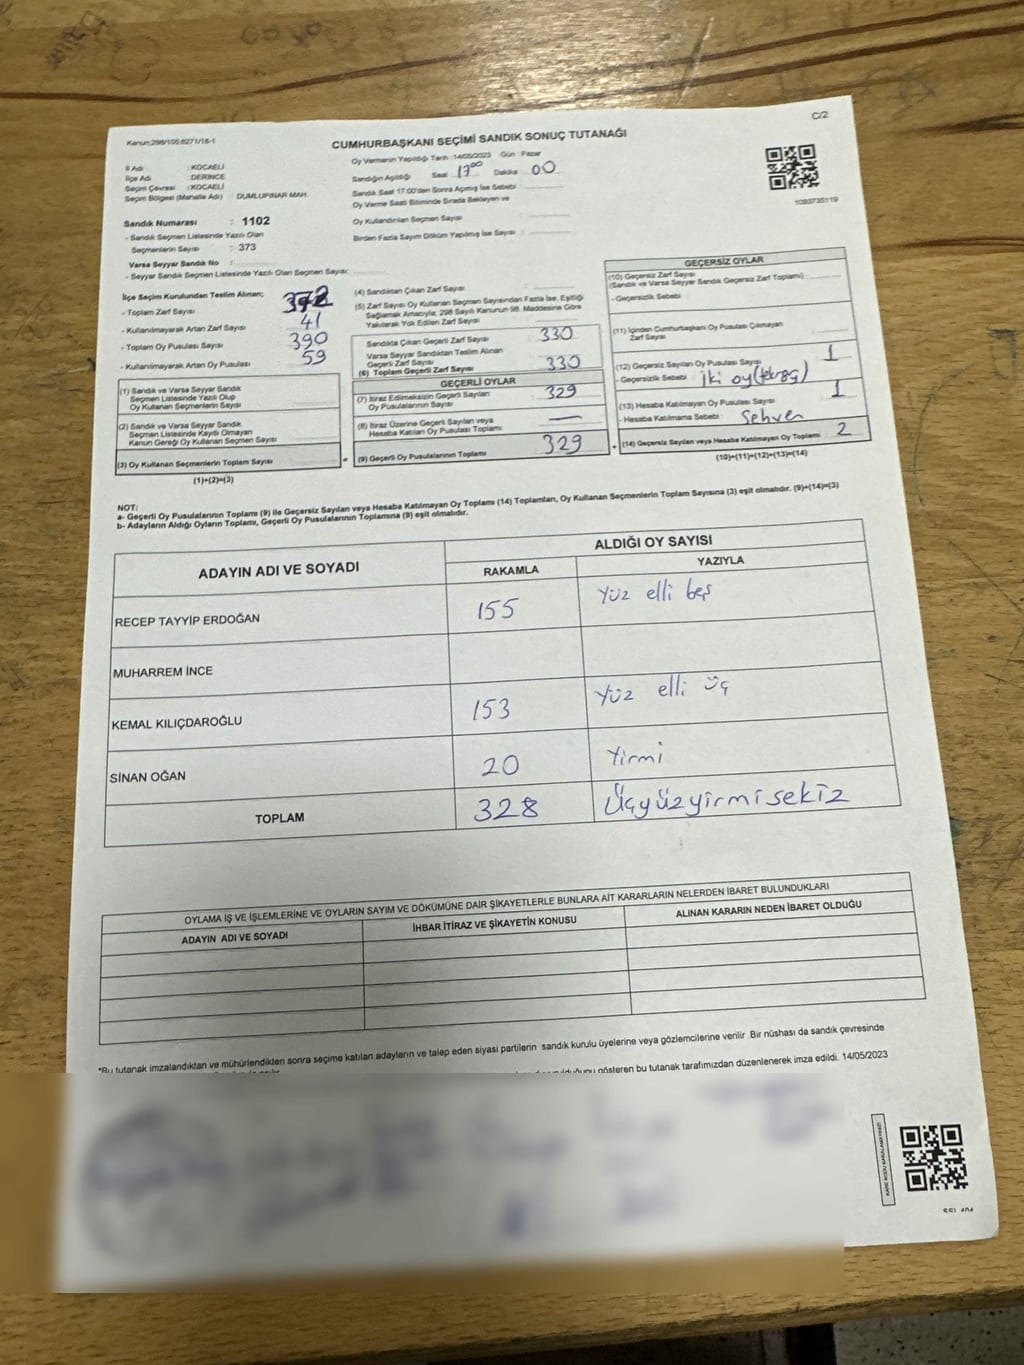 C/2
Kanun;298/105-6271/16-1
CUMHURBAŞKANI SEÇİMİ SANDIK SONUÇ TUTANAĞI
İl Adı : KOCAELİ
İlçe Adı : DERİNCE
Seçim Çevresi : KOCAELİ
Seçim Bölgesi (Mahalle Adı) : DUMLUPINAR MAH.
Sandık Numarası : 1102
- Sandık Seçmen Listesinde Yazılı Olan
Seçmenlerin Sayısı : 373
Varsa Seyyar Sandık No :
- Seyyar Sandık Seçmen Listesinde Yazılı Olan Seçmen Sayısı:
Oy Vermenin Yapıldığı Tarih :14/05/2023 Gün : Pazar
Sandığın Açıldığı Saat 17:00 Dakika 00
Sandık Saat 17:00'den Sonra Açılmış İse Sebebi :
Oy Verme Saati Bitiminde Sırada Bekleyen ve
Oy Kullandırılan Seçmen Sayısı
Birden Fazla Sayım Döküm Yapılmış İse Sayısı :
1093735119
İlçe Seçim Kurulundan Teslim Alınan;
- Toplam Zarf Sayısı
- Kullanılmayarak Artan Zarf Sayısı 41
- Toplam Oy Pusulası Sayısı 390
- Kullanılmayarak Artan Oy Pusulası 59
(1) Sandık ve Varsa Seyyar Sandık
Seçmen Listesinde Yazılı Olup
Oy Kullanan Seçmenlerin Sayısı
(2) Sandık ve Varsa Seyyar Sandık
Seçmen Listesinde Kayıtlı Olmayan
Kanun Gereği Oy Kullanan Seçmen Sayısı
(3) Oy Kullanan Seçmenlerin Toplam Sayısı =
(1)+(2)=(3)
(4) Sandıktan Çıkan Zarf Sayısı :
(5) Zarf Sayısı Oy Kullanan Seçmen Sayısından Fazla İse, Eşitliği
Sağlamak Amacıyla; 298 Sayılı Kanunun 98. Maddesine Göre
Yakılarak Yok Edilen Zarf Sayısı :
Sandıkta Çıkan Geçerli Zarf Sayısı 330
Varsa Seyyar Sandıktan Teslim Alınan
Geçerli Zarf Sayısı
(6) Toplam Geçerli Zarf Sayısı 330
GEÇERLİ OYLAR
(7) İtiraz Edilmeksizin Geçerli Sayılan
Oy Pusulalarının Sayısı 329
(8) İtiraz Üzerine Geçerli Sayılan veya
Hesaba Katılan Oy Pusulası Toplamı —
(9) Geçerli Oy Pusulalarının Toplamı 329 +
GEÇERSİZ OYLAR
(10) Geçersiz Zarf Sayısı
(Sandık ve Varsa Seyyar Sandık Geçersiz Zarf Toplamı) :
- Geçersizlik Sebebi :
(11) İçinden Cumhurbaşkanı Oy Pusulası Çıkmayan
Zarf Sayısı
(12) Geçersiz Sayılan Oy Pusulası Sayısı 1
- Geçersizlik Sebebi : iki oy
(13) Hesaba Katılmayan Oy Pusulası Sayısı 1
- Hesaba Katılmama Sebebi : Sehven
(14) Geçersiz Sayılan veya Hesaba Katılmayan Oy Toplamı 2
(10)+(11)+(12)+(13)=(14)
NOT:
a- Geçerli Oy Pusulalarının Toplamı (9) ile Geçersiz Sayılan veya Hesaba Katılmayan Oy Toplamı (14) Toplamları, Oy Kullanan Seçmenlerin Toplam Sayısına (3) eşit olmalıdır. (9)+(14)=(3)
b- Adayların Aldığı Oyların Toplamı, Geçerli Oy Pusulalarının Toplamına (9) eşit olmalıdır.
ADAYIN ADI VE SOYADI
ALDIĞI OY SAYISI
RAKAMLA YAZIYLA
RECEP TAYYİP ERDOĞAN 155 Yüz elli beş
MUHARREM İNCE
KEMAL KILIÇDAROĞLU 153 Yüz elli üç
SİNAN OĞAN 20 Yirmi
TOPLAM 328 Üçyüzyirmisekiz
OYLAMA İŞ VE İŞLEMLERİNE VE OYLARIN SAYIM VE DÖKÜMÜNE DAİR ŞİKAYETLERLE BUNLARA AİT KARARLARIN NELERDEN İBARET BULUNDUKLARI
ADAYIN ADI VE SOYADI İHBAR İTİRAZ VE ŞİKAYETİN KONUSU ALINAN KARARIN NEDEN İBARET OLDUĞU
*Bu tutanak imzalandıktan ve mühürlendikten sonra seçime katılan adayların ve talep eden siyasi partilerin sandık kurulu üyelerine veya gözlemcilerine verilir. Bir nüshası da sandık çevresinde
gösteren bu tutanak tarafımızdan düzenlenerek imza edildi. 14/05/2023